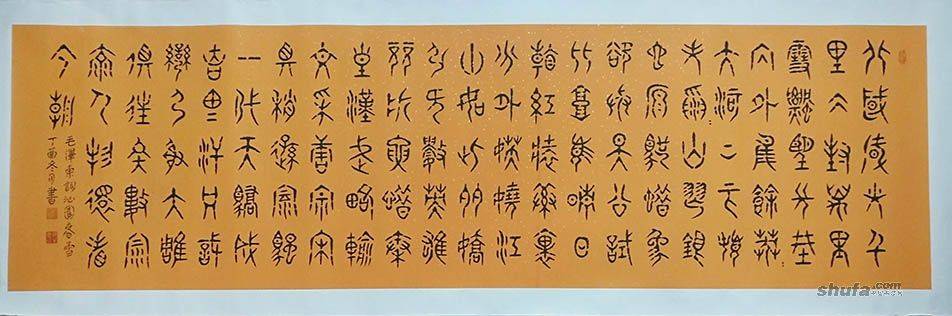 北國風光千
里冰封萬里
雪飄望長城
內外惟餘莽〻
大河上下頓
失滔〻山舞銀
蛇原馳蠟象
欲與天公試
比高須晴日
看紅裝素裹
分外妖嬈江
山如此多嬌
引無數英雄
競折腰惜秦
皇漢武略輸
文采唐宗宋
祖稍遜風騷
一代天驕成
吉思汗只識
彎弓射大雕
俱往矣數風
流人物還看
今朝
毛澤東詞沁園春雪
丁酉冬月書
shufa.com